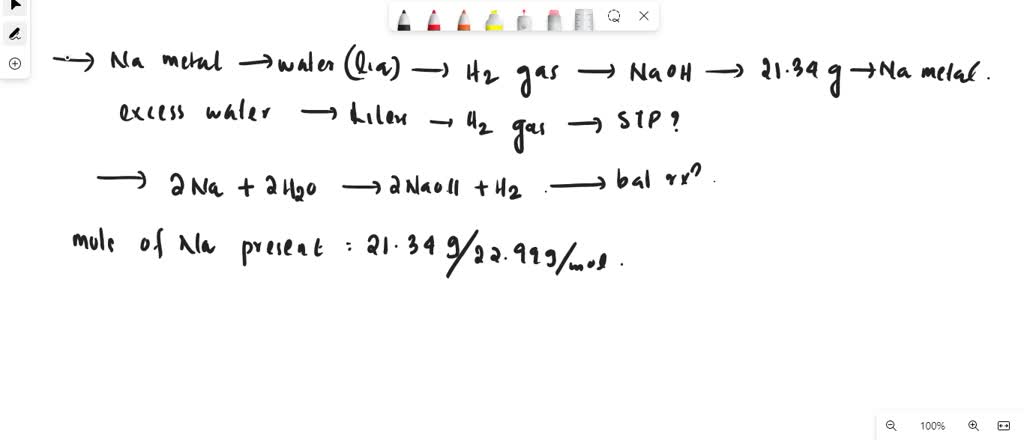 → Na metal → water (liq) → H2 gas → NaOH → 21.34 g → Na metal.
excess water → Liters → H2 gas → STP?
→ 2Na + 2H2O → 2NaOH + H2 → bal rxn.
mole of Na present : 21.34 g/22.99 g/mol.
100%